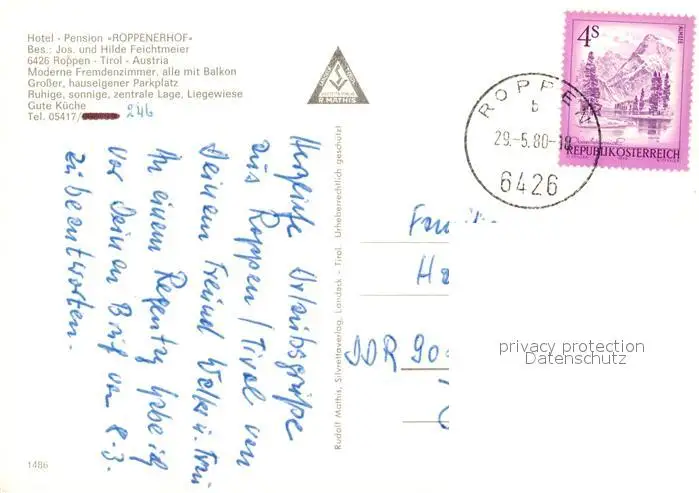 Hotel - Pension «ROPPENERHOF»
Bes.: Jos. und Hilde Feichtmeier
6426 Roppen - Tirol - Austria
Moderne Fremdenzimmer, alle mit Balkon
Großer, hauseigener Parkplatz
Ruhige, sonnige, zentrale Lage, Liegewiese
Gute Küche
Tel. 05417/ 246
R. MATHIS
4S
ALMSEE
REPUBLIK ÖSTERREICH
ROPPEN
b
29.-5.80-18
6426
Herzliche Urlaubsgrüße
aus Roppen / Tirol von
Deinem Freund u.
An einem Regentag habe ich
vor Deinen Brief vom 8.3.
zu beantworten.
Rudolf Mathis, Silvrettaverlag, Landeck - Tirol Urheberrechtlich geschützt!
Fam
Ha
DDR 90
privacy protection
Datenschutz
1486